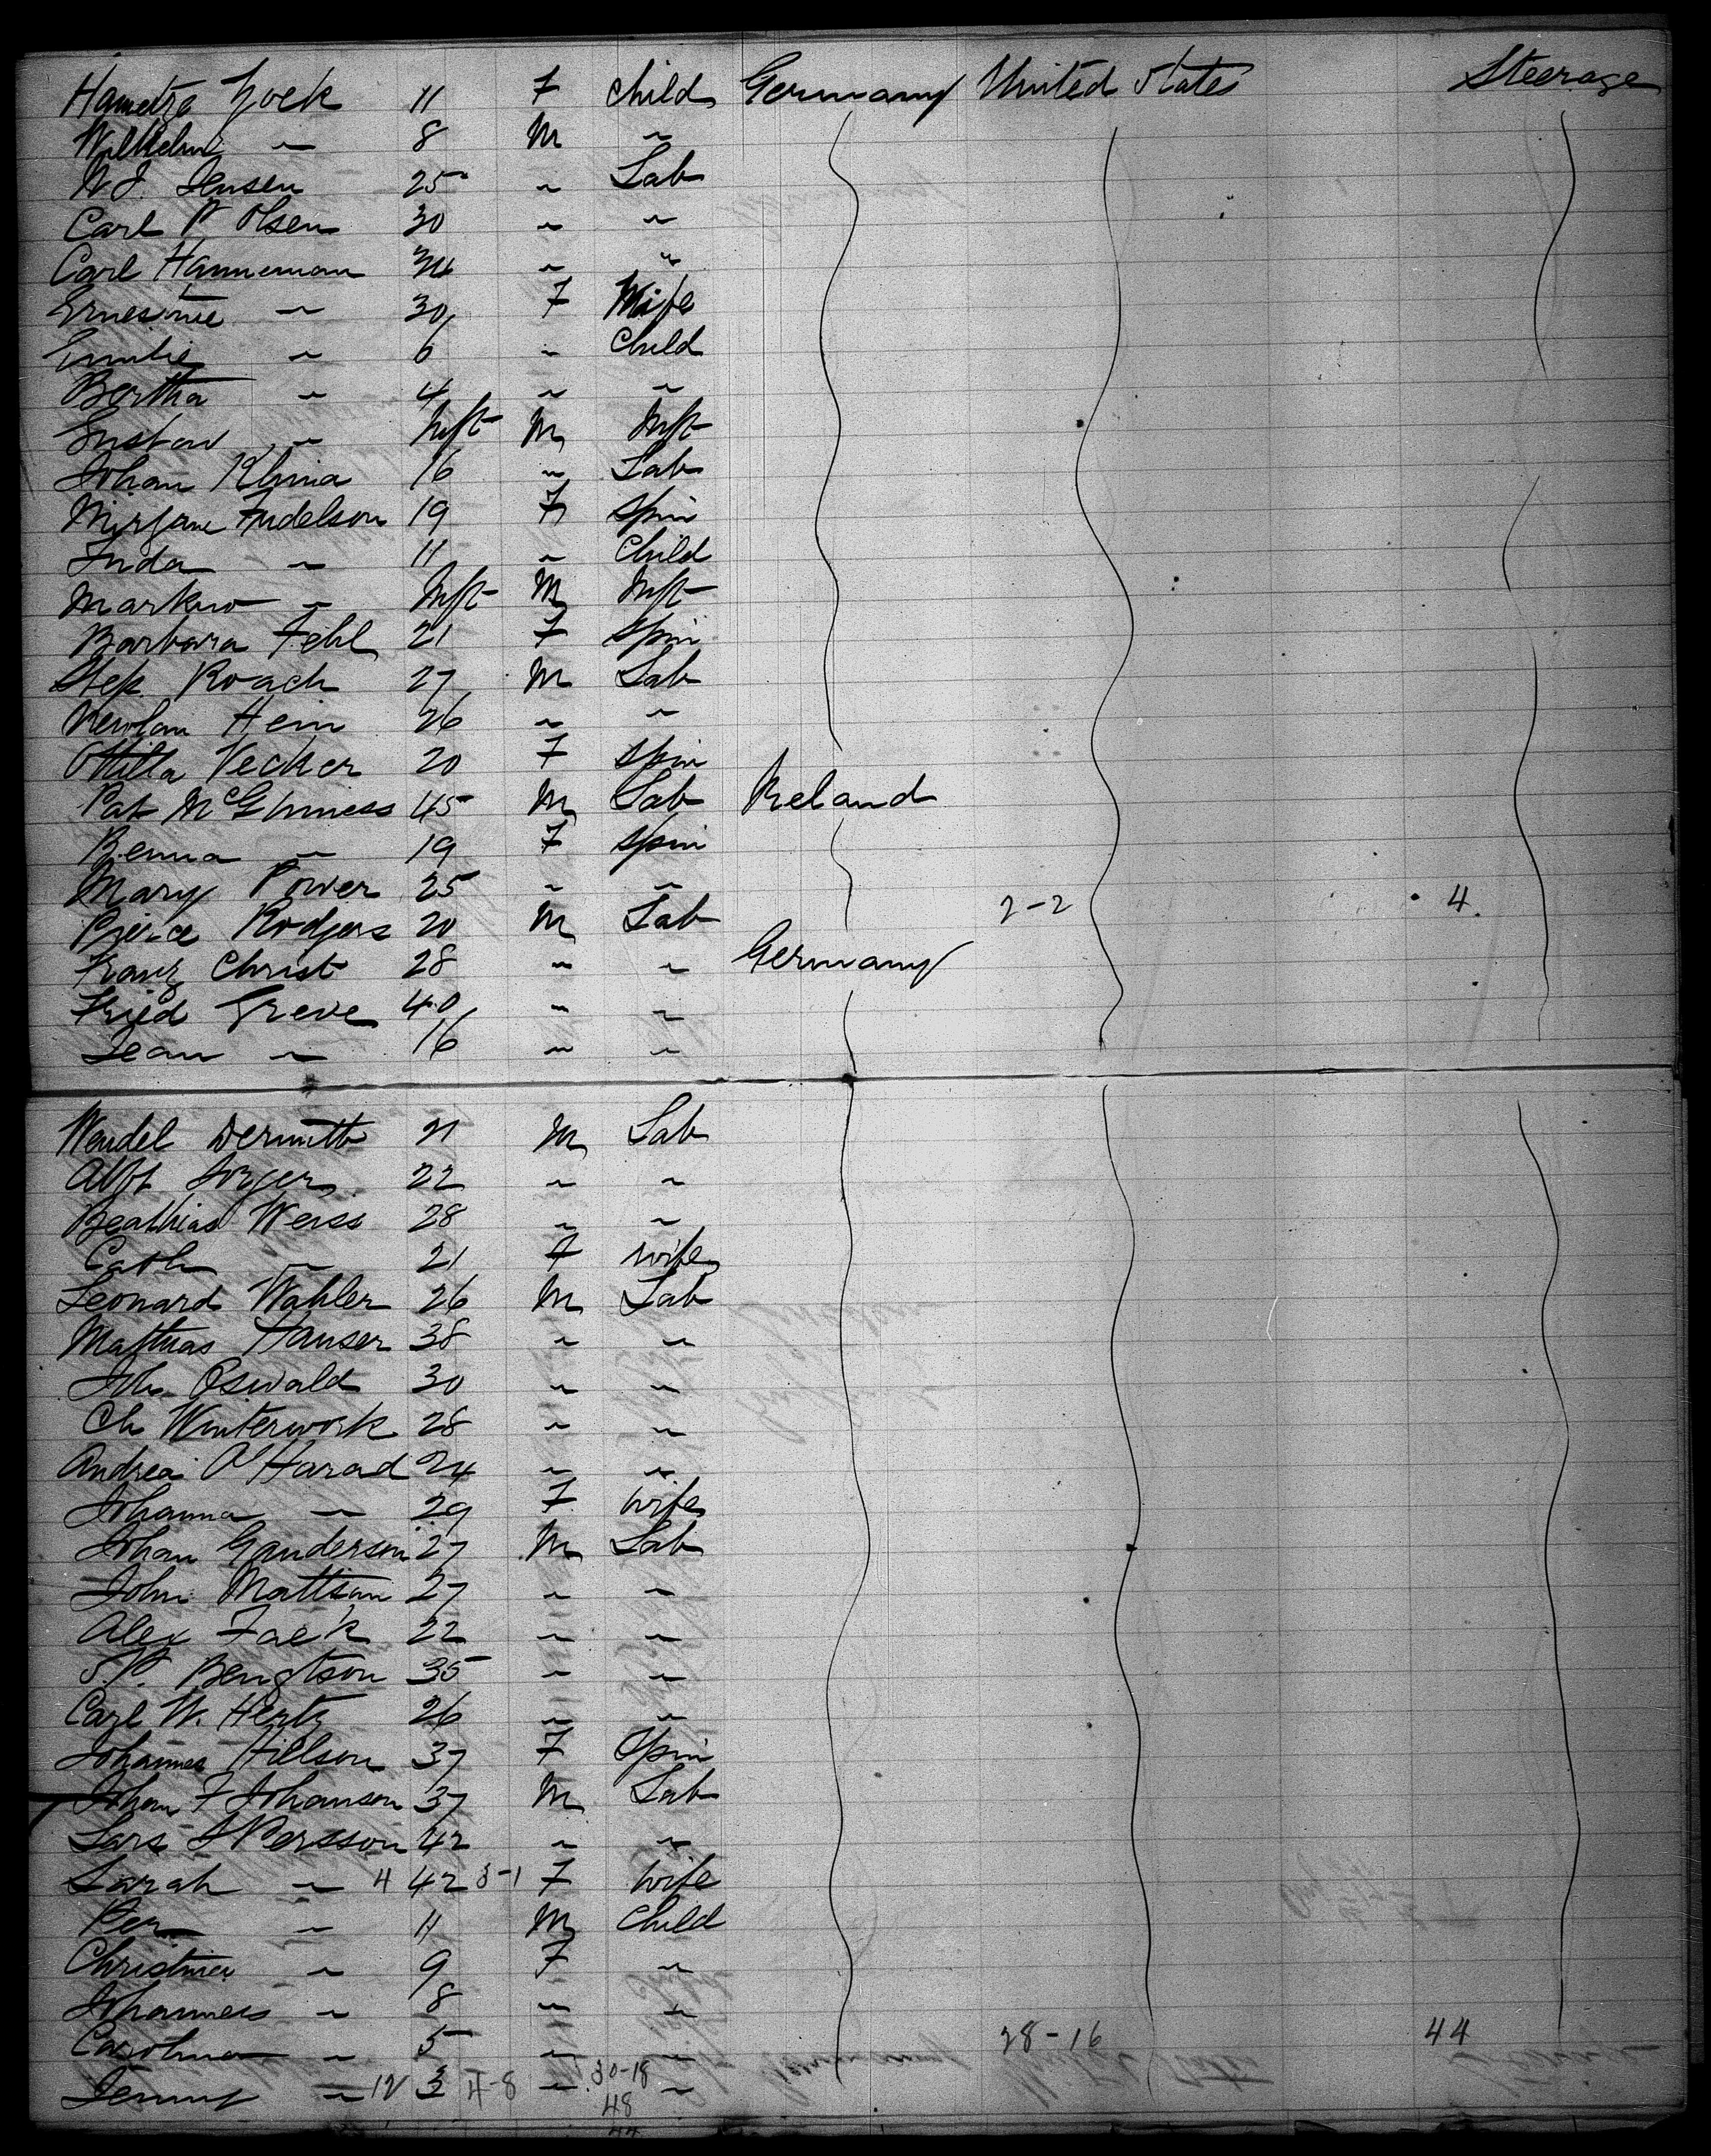 Hametza Zoek 11 F Child Germany United States Steerage
Wilhelm " 8 M "
N.J. Jensen 25 " Lab
Carl P Olsen 30 " "
Carl Hanneman 34 " "
Ernestine " 30 F Wife
Emilie " 6 " Child
Bertha " 4 " "
Gustav " Inft M Inft
Johan Klima 16 " Lab
Mirjane Fudelson 19 F Spin
Inda " 11 " Child
Markus " Inft M Inft
Barbara Fehl 21 F Spin
Step Roach 27 M Lab
Hein 26 " "
Ottilla Vecker 20 F Spin
Pat McGinness 45 M Lab Ireland
Benna " 19 F Spin
Mary Power 25 " " 2-2 4
Pierce Rodgers 20 M Lab
Franz Christ 28 " " Germany
Fried Greve 40 " "
Jean " 16 " "
Wendel Dermitt 21 M Lab
Albt Sorger 22 " "
Beathias Weiss 28 " "
Cath " 21 F Wife
Leonard Wahler 26 M Lab
Mathias Hauser 38 " "
Joh. Oswald 30 " "
Ch Winterwork 28 " "
Andrea O'Harad 24 " "
Johanna " 29 F Wife
Johan Ganderson 27 M Lab
John Mattson 27 " "
Alex Faek 22 " "
S.P. Bengtson 35 " "
Carl W. Hertz 26 " "
Johannes Hillson 37 F Spin
Johan F Johanson 37 M Lab
Lars J Persson 42 " "
Sarah " 4 42 3-1 F Wife
Per " 11 M Child
Christina " 9 F "
Johannes " 8 " "
Carolina " 5 " " 28-16 44
Jenny " 12 3 4-8 " 30-18 "
48
44